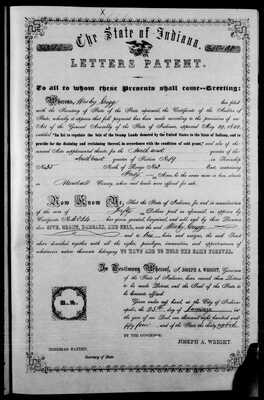 X
The State of Indiana.
LETTERS PATENT.
To all to whom these Presents shall come—Greeting:
Whereas, Wesley Gregg has filed
with the Secretary of State of the State aforesaid, the Certificate of the Auditor of
State, whereby it appears that full payment has been made according to the provision of an
Act of the General Assembly of the State of Indiana, approved May 29, 1852,
entitled "An Act to regulate the Sale of the Swamp Lands donated by the United States to the State of Indiana, and to
provide for the draining and reclaiming thereof, in accordance with the condition of said grant," and also of the
several Acts supplemental thereto, for the quarter of the
quarter of Section in Township
North of Range containing
Forty Acres, to the same more or less, situate
in Marshall County, where said lands were offered for sale.
Now Know Ye, That the State of Indiana, for and in consideration
of the sum of Fifty Dollars paid as referred to, appears by
Certificate has given, granted, bargained and sold, and by these Presents
does GIVE, GRANT, BARGAIN, AND SELL, unto the said Wesley Gregg
and to his heirs and assigns, the said Tract
above described together with all the rights, privileges, immunities, and appurtenances of
whatsoever nature thereunto belonging TO HAVE AND TO HOLD THE SAME FOREVER.
In Testimony Whereof, I, JOSEPH A. WRIGHT, Governor
of the State of Indiana, have caused these Letters
to be made Patent, and the Seal of the State to
be hereunto affixed.
Given under my hand, at the City of Indianapolis,
the 25th day of January in
the year of our Lord one thousand eight hundred and
fifty four and of the State the thirty eighth
BY THE GOVERNOR:
JOSEPH A. WRIGHT.
Secretary of State